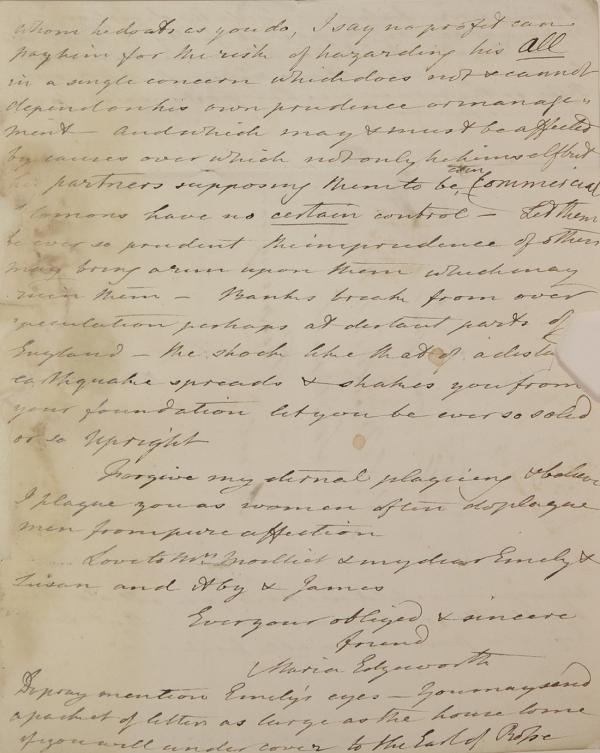 whom he dsats as you do, I say no profit can
pay him for the risk of hazarding his all
in a single concern which does not & cannot
depend on his own prudence or manage=
ment – and which may & must be affected
by causes over which not only he himself but
his partners supposing them to be even Commercial
Solomons have no certain control – Let them
be ever so prudent the imprudence of others
may bring a run upon them which may
ruin them – Banks break from over
speculation perhaps at distant parts of
England – the shock like that of a dista
earthquake spreads & shakes you from
your foundation let you be ever so solid
or so upright
Forgive my eternal plaguing & believe
I plague you as women often do plague
men from pure affection
Love to Mrs Moilliet & my dear Emily &
Susan and Aby & James
Ever your obliged & sincere
friend
Maria Edgeworth
Do pray mention Emily's eyes – You may send
a packet of letters as large as the house to me
if you will under cover to the Earl of Rosse